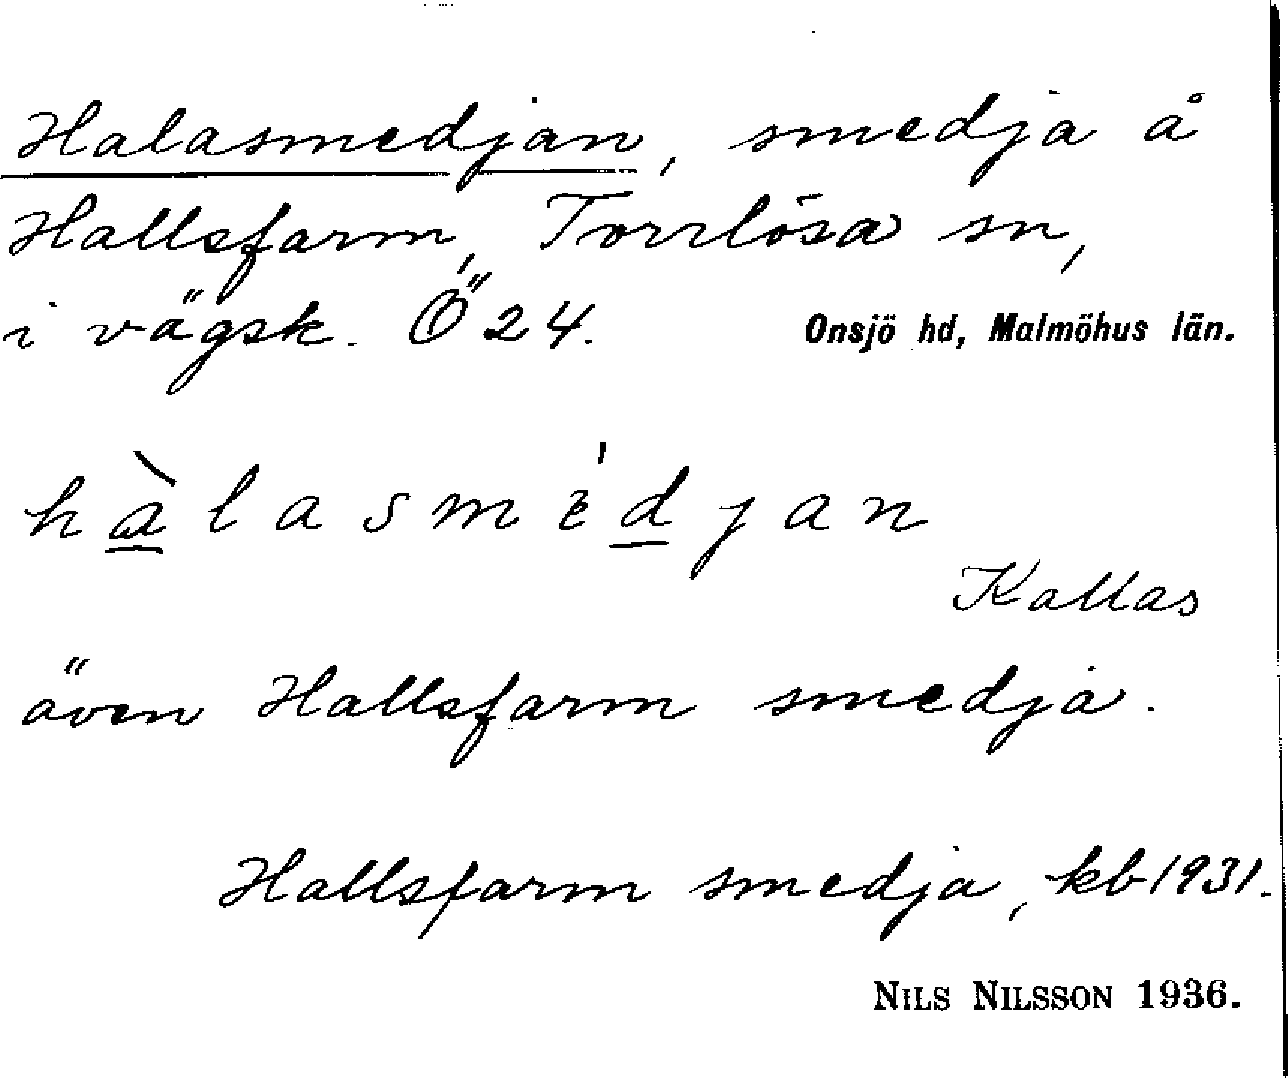 Halasmedjan, smedja å
Hallsfarm, Torrlösa sn,
i vägsk. Ö 24. Onsjö hd, Malmöhus län.
hàlasmédjan
Kallas
även Hallsfarm smedja.
Hallsfarm smedja, kb 1931.
NILS NILSSON 1936.